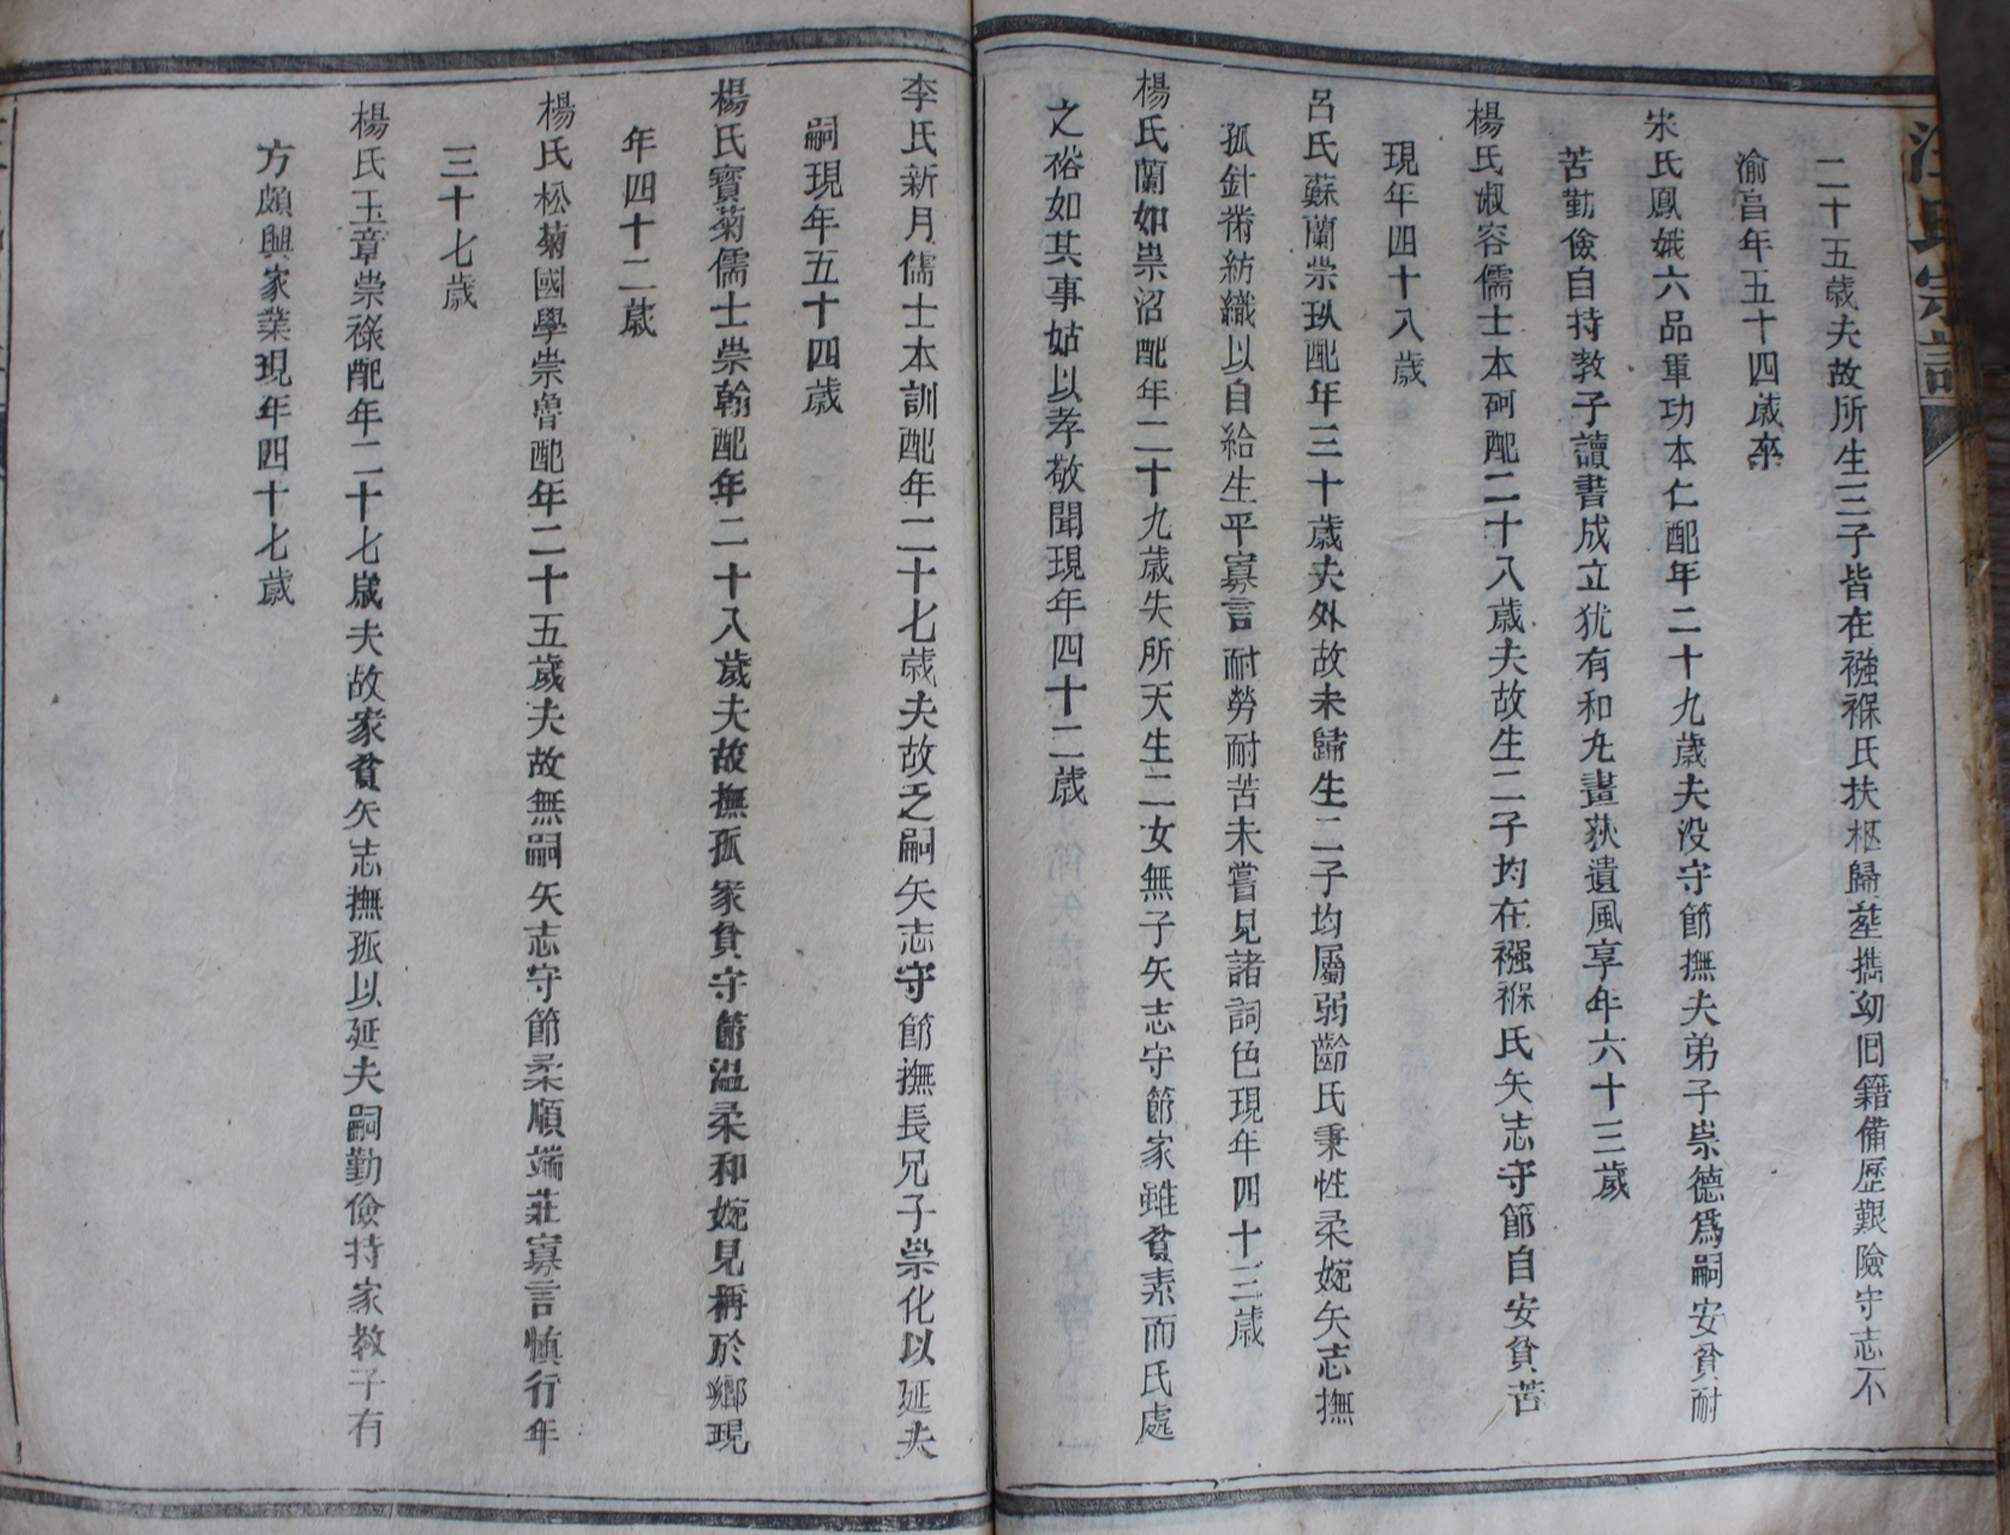 汪氏宗譜
二十五歲夫故所生三子皆在襁褓氏扶柩歸塟携幼囘籍備歷艱險守志不
渝享年五十四歲卒
宋氏鳳娥六品軍功本仁配年二十九歲夫没守節撫夫弟子崇德爲嗣安貧耐
苦勤儉自持教子讀書成立犹有和丸畫荻遺風享年六十三歲
楊氏淑容儒士本珂配二十八歲夫故生二子均在襁褓氏矢志守節自安貧苦
現年四十八歲
呂氏蘇蘭崇玖配年三十歲夫外故未歸生二子均屬弱齡氏秉性柔婉矢志撫
孤針黹紡織以自給生平寡言耐勞耐苦未嘗見諸詞色現年四十三歲
楊氏蘭如崇沼配年二十九歲失所天生二女無子矢志守節家雖貧素而氏處
之裕如其事姑以孝敬聞現年四十二歲
李氏新月儒士本訓配年二十七歲夫故乏嗣矢志守節撫長兄子崇化以延夫
嗣現年五十四歲
楊氏寳菊儒士崇翰配年二十八歲夫故撫孤家貧守節溫柔和婉見稱於鄉現
年四十二歲
楊氏松菊國學崇魯配年二十五歲夫故無嗣矢志守節柔順端莊寡言慎行年
三十七歲
楊氏玉章崇祿配年二十七歲夫故家貧矢志撫孤以延夫嗣勤儉持家教子有
方頗興家業現年四十七歲